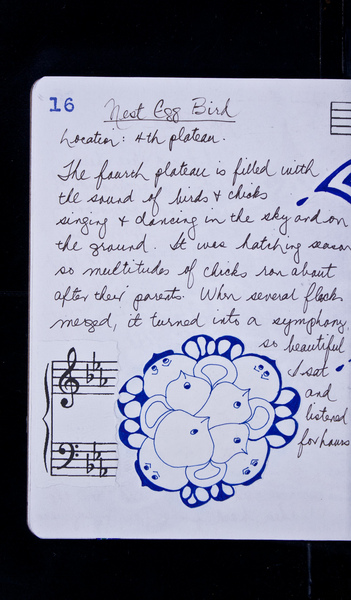 16
Nest Egg Bird
Location: 4th plateau.
The fourth plateau is filled with
the sound of birds & chicks
singing & dancing in the sky and on
the ground. It was hatching season
so multitudes of chicks ran about
after their parents. When several flocks
merged, it turned into a symphony
so beautiful
I sat
and
listened
for hours